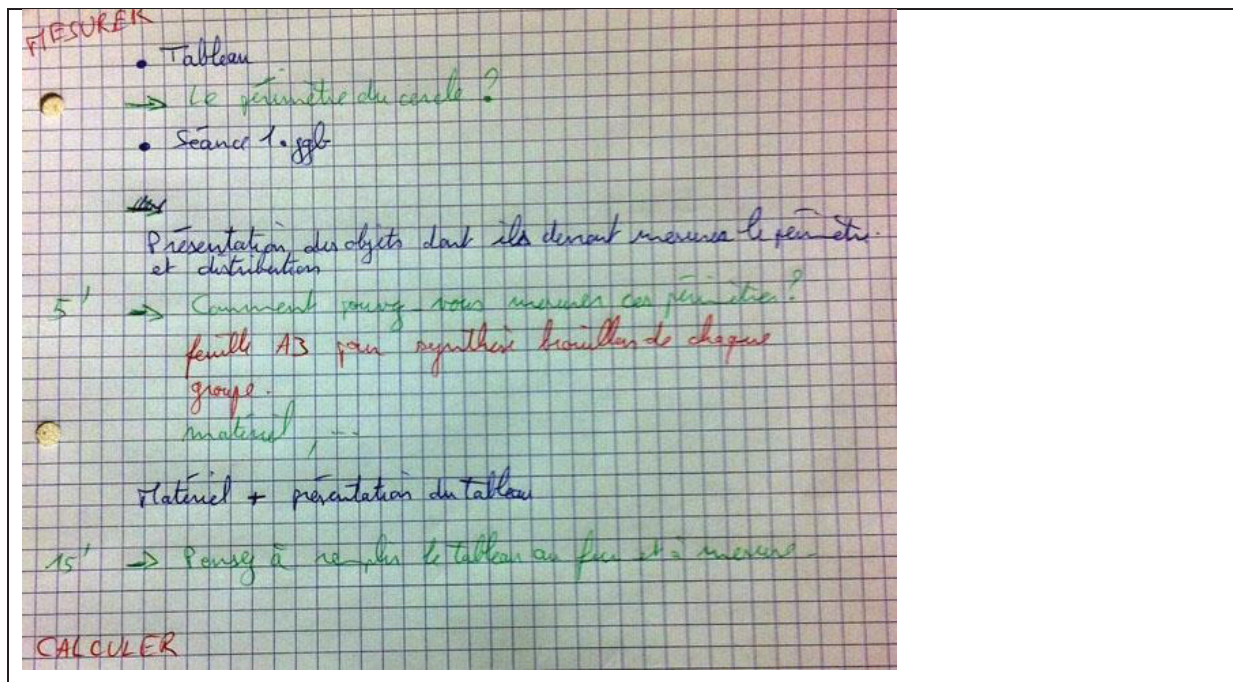 MESURER
• Tableau
→ Le périmètre du cercle ?
• Séance 1.ggb
Présentation des objets dont ils devront mesurer le périmètre.
et distribution
5' → Comment pouvez-vous mesurer ces périmètres ?
feuille A3 pour synthèse brouillon de chaque
groupe.
matériel, ...
Matériel + présentation du tableau
15' → Pensez à remplir le tableau au fur et à mesure.
CALCULER